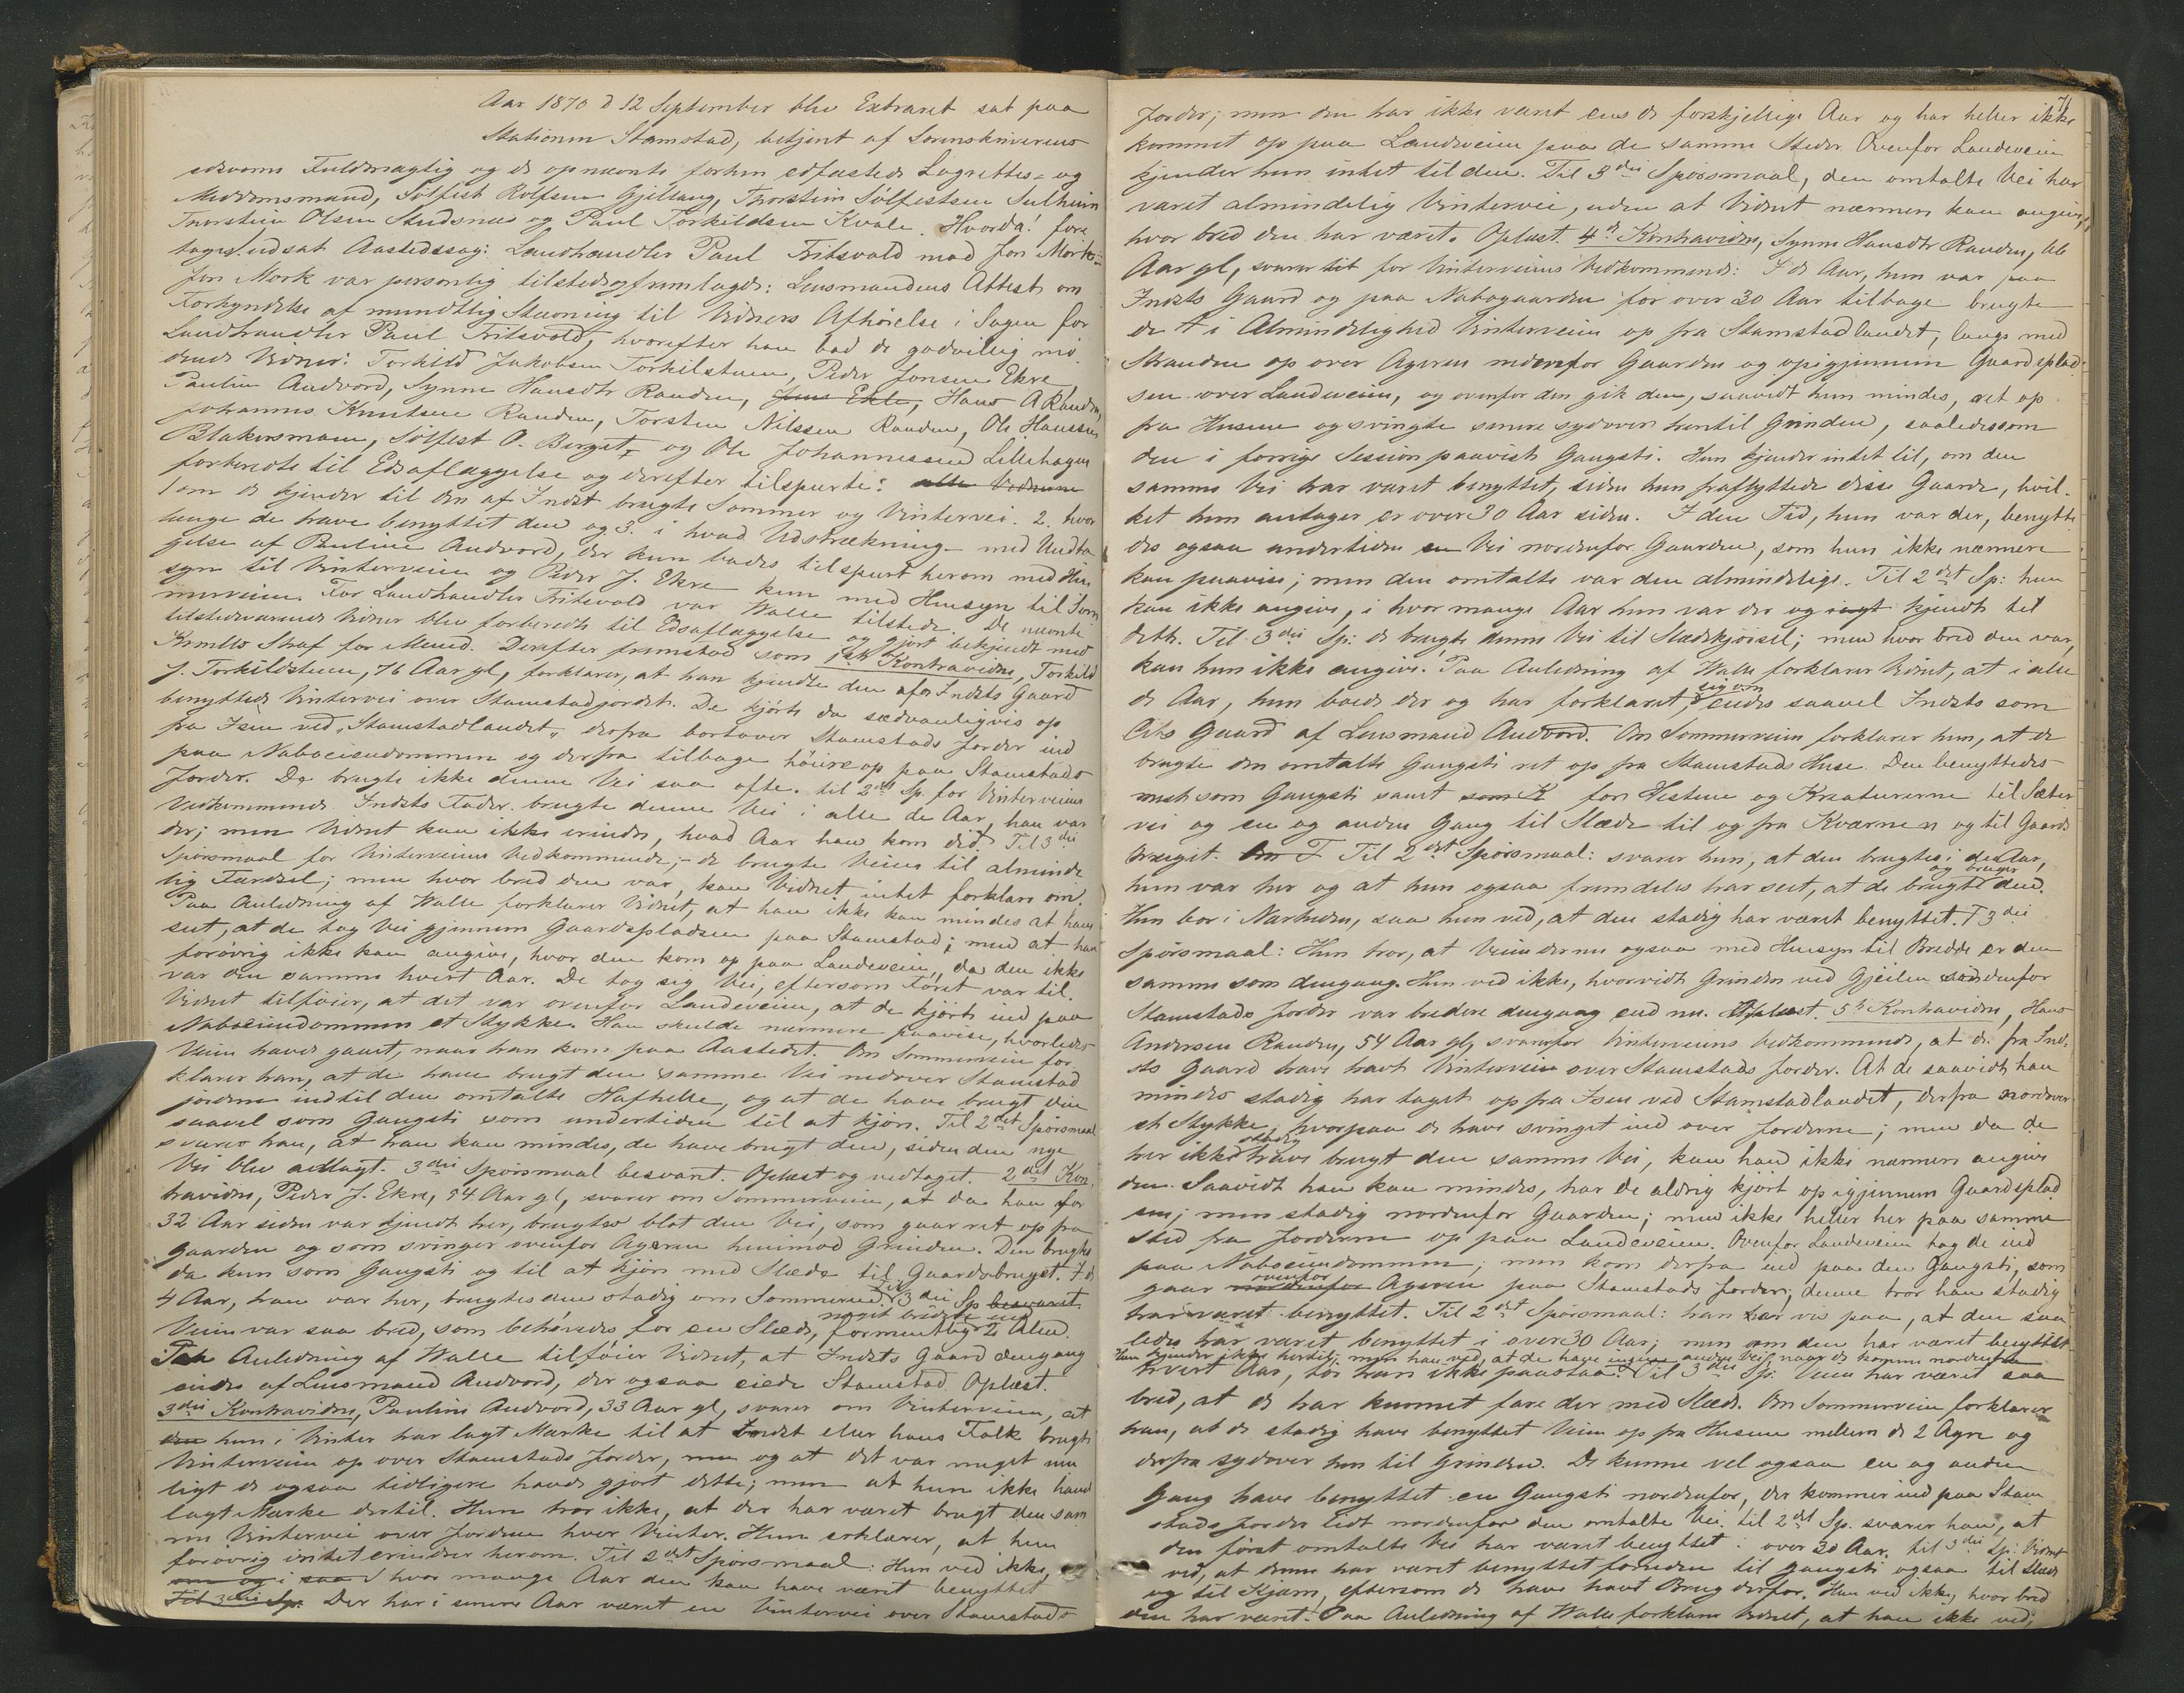 Aar 1870 d 12 September blev Extraret sat paa
Stationen Stamstad, betjent af Sorenskriverens
edsvorne Fuldmægtig og de opnævnte forhen edfæstede Lagrettes- og
Meddomsmænd, Sølfest Rolfsen Gjellang, Thorstein Sølfestsen
Thorstein Olsen Studsnæs og Paul Torkildsen Kvale. Hvorda! fore
toges udsat Aastedssag: Landhandler Paul Tritsvold mod Jon Mørk:
Jon Mørk var personlig tilstede og fremlagde: Lensmandens Attest om
Forkyndelse af mundtlig Stævning til Vidners Afhørelse i Sagen for
Landhandler Paul Tritsvold, hvorefter han bad de godvillig mø-
dende Vidner: Torkild Jakobsen Torkilstuen, Peder Jonsen Ekre,
Pauline Andvord, Synne Hansdtr Randen, Jens Ekle, Hans A Randen,
Johannes Knutsen Randen, Torsten Nilssen Randen, Ole Hanssen
Blakersmoen, Sølfest O. Berget, og Ole Johannessen Lillehagen
forberedte til Edsaflæggelse og derefter tilspurte: alle Vidnerne
1 om de kjender til den af Indst brugte Sommer og Vintervei. 2. hvor
længe de have benyttet den og 3. i hvad Udstrækning - med Undta
gelse af Pauline Andvord, der kun bades tilspurt herom med Hen
syn til Vinterveien og Peder J. Ekre kun med Hensyn til Som
merveien. For Landhandler Tritsvold var Walle tilstede. De nævnte
tilstedeværende Vidner blev forberedte til Edsaflæggelse og gjort bekjendt med
Straf for Meened. Derefter fremstod som 1ste Kontravidne, Torkild
J. Torkildstuen, 76 Aar gl, forklarer, at han kjendte den af fra Indsts Gaard
benyttede Vintervei over Stamstadjordet. De kjørte da sædvanligvis op
fra Isen ved „Stamstadlandet„ derfra bortover Stamstads Jorder ind
paa Naboeiendommen og derfra tilbage høiere op paa Stamstads
Jorder. De brugte ikke denne Vei saa ofte. til 2det Sp. for Vinterveiens
Vedkommende. Indsts Fader brugte denne Vei i alle de Aar, han var
der; men Vidnet kan ikke erindre, hvad Aar han kom did. Til 3die
Spørsmaal for Vinterveiens Vedkommende; - de brugte Veien til alminde
lig Færdsel; men hvor bred den var, kan Vidnet intet forklare om.
Paa Anledning af Walle forklarer Vidnet, at han ikke kan mindes at have
seet, at de tog Vei gjennem Gaardspladsen paa Stamstad; men at han
forøvrig ikke kan angive, hvor den kom op paa Landeveien, da den ikke
var den samme hvert Aar. De tog sig Vei, eftersom Føret var til.
Vidnet tilføier, at det var ovenfor Landeveien, at de kjørte ind paa
Naboeiendommen et Stykke. Han skulde nærmere paavise, hvorledes
Veien havde gaaet, naar han kom paa Aastedet. Om Sommerveien for
klarer han, at de have brugt den samme Vei nedover Stamstad
jordene indtil den omtalte Hafhelle, og at de have brugt den
saavel som Gangsti som undertiden til at kjøre. Til 2det Spørsmaal
svarer han, at han kan mindes, de have brugt den, siden den nye
Vei blev anlagt. 3die Spørsmaal besvaret. Oplæst og vedtaget. 2det Kon
travidne, Peder J. Ekre, 54 Aar gl, svarer om Sommerveien, at da han for
32 Aar siden var kjendt her, brugtes blot den Vei, som gaar ret op fra
Gaarden og som svinger ovenfor Ageren henimod Grinden. Den brugtes
da kun som Gangsti og til at kjøre med Slæde til Gaardsbruget. I de
4 Aar, han var her, brugtes den stadig om Sommeren. Til 3die Sp besvaret
Veien var saa bred, som behøvedes for en Slæde, formentlig noget bredere end 2 Alen.
Paa Anledning af Walle tilføier Vidnet, at Indsts Gaard dengang
eiedes af Lensmand Andvord, der ogsaa eiede Stamstad. Oplæst.
3die Kontravidne, Pauline Andvord, 33 Aar gl, svarer om Vinterveien, at
den hun i Vinter har lagt Mærke til at Indst eller hans Folk brugte
Vinterveien op over Stamstads Jorder, men og at det var meget mu
ligt de ogsaa tidligere havde gjort dette; men at hun ikke havde
lagt Mærke dertil. Hun tror ikke, at der har været brugt den sam
me Vintervei over Jordene hver Vinter. Hun erklærer, at hun
forøvrig intet erindrer herom. Til 2det Spørsmaal: Hun ved ikke,
om og i saa I hvor mange Aar den kan have været benyttet
Til 3die Sp. Der har i senere Aar været en Vintervei over Stamstads
71
Jorder; men den har ikke været ens de forskjellige Aar og har heller ikke
kommet op paa Landeveien paa de samme Steder. Ovenfor Landeveien
kjender hun intet til den. Til 3die Spørsmaal, den omtalte Vei har
været almindelig Vintervei, uden at Vidnet nærmere kan angive,
hvor bred den har været. Oplæst. 4de Kontravidne, Synne Hansdtr Randen,
Aar gl, svarer til for Vinterveiens Vedkommende: I de Aar, hun var paa
Indsts Gaard og paa Nabogaarden for over 30 Aar tilbage brugte
de i Almindelighed Vinterveien op fra Stamstadlandet, langs med
Stranden op over Ageren nedenfor Gaarden og op igjennem Gaardsplad-
sen over Landeveien, og ovenfor den gik den, saavidt hun mindes, ret op
fra Husene og svingte senere sydover hentil Grinden, saaledes som
den i forrige Session paaviste Gangsti. Hun kjender intet til, om den
samme Vei har været benyttet, siden hun fraflyttede disse Gaarde, hvil-
ket hun antager er over 30 Aar siden. I den Tid, hun var der, benytte
des ogsaa undertiden en Vei nordenfor Gaarden, som hun ikke nærmere
kan paavise; men den omtalte var den almindelige. Til 2det Sp: hun
kan ikke angive, i hvor mange Aar hun var der og kjendte til
dette. Til 3die Sp: de brugte denne Vei til Slædekjørsel; men hvor bred den var,
kan hun ikke angive. Paa Anledning af Walle forklarer Vidnet, at i alle
de Aar, hun boede der og har forklaret sig om, eiedes saavel Indsts som
Cits Gaard af Lensmand Andvord. Om Sommerveien forklarer hun, at de
brugte den omtalte Gangsti ret op fra Stamstads Huse. Den benyttedes
mest som Gangsti samt som K for Hestene og Kreaturerne til Sæter
vei og en og anden Gang til Slæde til og fra Kværnen og til Gaards
Om T Til 2det Spørsmaal: svarer hun, at den brugtes i de Aar,
hun var her og at hun ogsaa fremdeles har seet, at de brugte og bruger den.
Hun bor i Nærheden, saa hun ved, at den stadig har været benyttet. T 3die
Spørsmaal: Hun tror, at Veien der nu ogsaa med Hensyn til Bredde er den
samme som dengang. Hun ved ikke, hvorvidt Grinden ved Gjeilen nordenfor
Stamstads Jorder var bredere dengang end nu. Oplæst. 5te Kontravidne, Hans
Andersen Randen, 54 Aar gl, svarer for Vinterveiens Vedkommende, at de fra Ind-
sts Gaard have havt Vintervei over Stamstads Jorder. At de saavidt han
mindes stadig har taget op fra Isen ved Stamstadlandet, derfra nordover
et Stykke, hvorpaa de have svinget ind over Jorderne; men da de
her ikke stadig have brugt den samme Vei, kan han ikke nærmere angive
den. Saavidt han kan mindes, har de aldrig kjørt op igjennem Gaardsplad
sen; men stadig nordenfor Gaarden; men ikke heller her paa samme
Sted fra Jorderne op paa Landeveien. Ovenfor Landeveien tog de ind
paa Naboeiendommen; men kom derfra ind paa den Gangsti, som
gaar nordenfor ovenfor Ageren paa Stamstads Jorder; denne tror han stadig
har været benyttet. Til 2det Spørsmaal: han tør vis paa, at den saa
ledes har været benyttet i over 30 Aar; men om den har været benyttet
Han kjender ikke hertil; men han ved, at de have ingen anden Vei, naar de komme nordenfra
hvert Aar, tør han ikke paastaa. Til 3die Sp. Veien har været saa
bred, at de har kunnet fare der med Slæde. Om Sommerveien forklarer
han, at de stadig have benyttet Veien op fra Husene mellem de 2 Agre og
derfra sydover hen til Grinden. De kunne vel ogsaa en og anden
Gang have benyttet en Gangsti nordenfor, der kommer ind paa Stam
stads Jorder lidt nordenfor den omtalte Vei. til 2det Sp. svarer han, at
den først omtalte Vei har været benyttet i over 30 Aar. til 3die Sp: Vidnet
ved, at denne har været benyttet foruden til Gangsti ogsaa til Slæde
og til Kjærre, eftersom de have havt Brug derfor. Han ved ikke, hvor bred
den har været. Paa Anledning af Walle forklarer Vidnet, at han ikke ved,